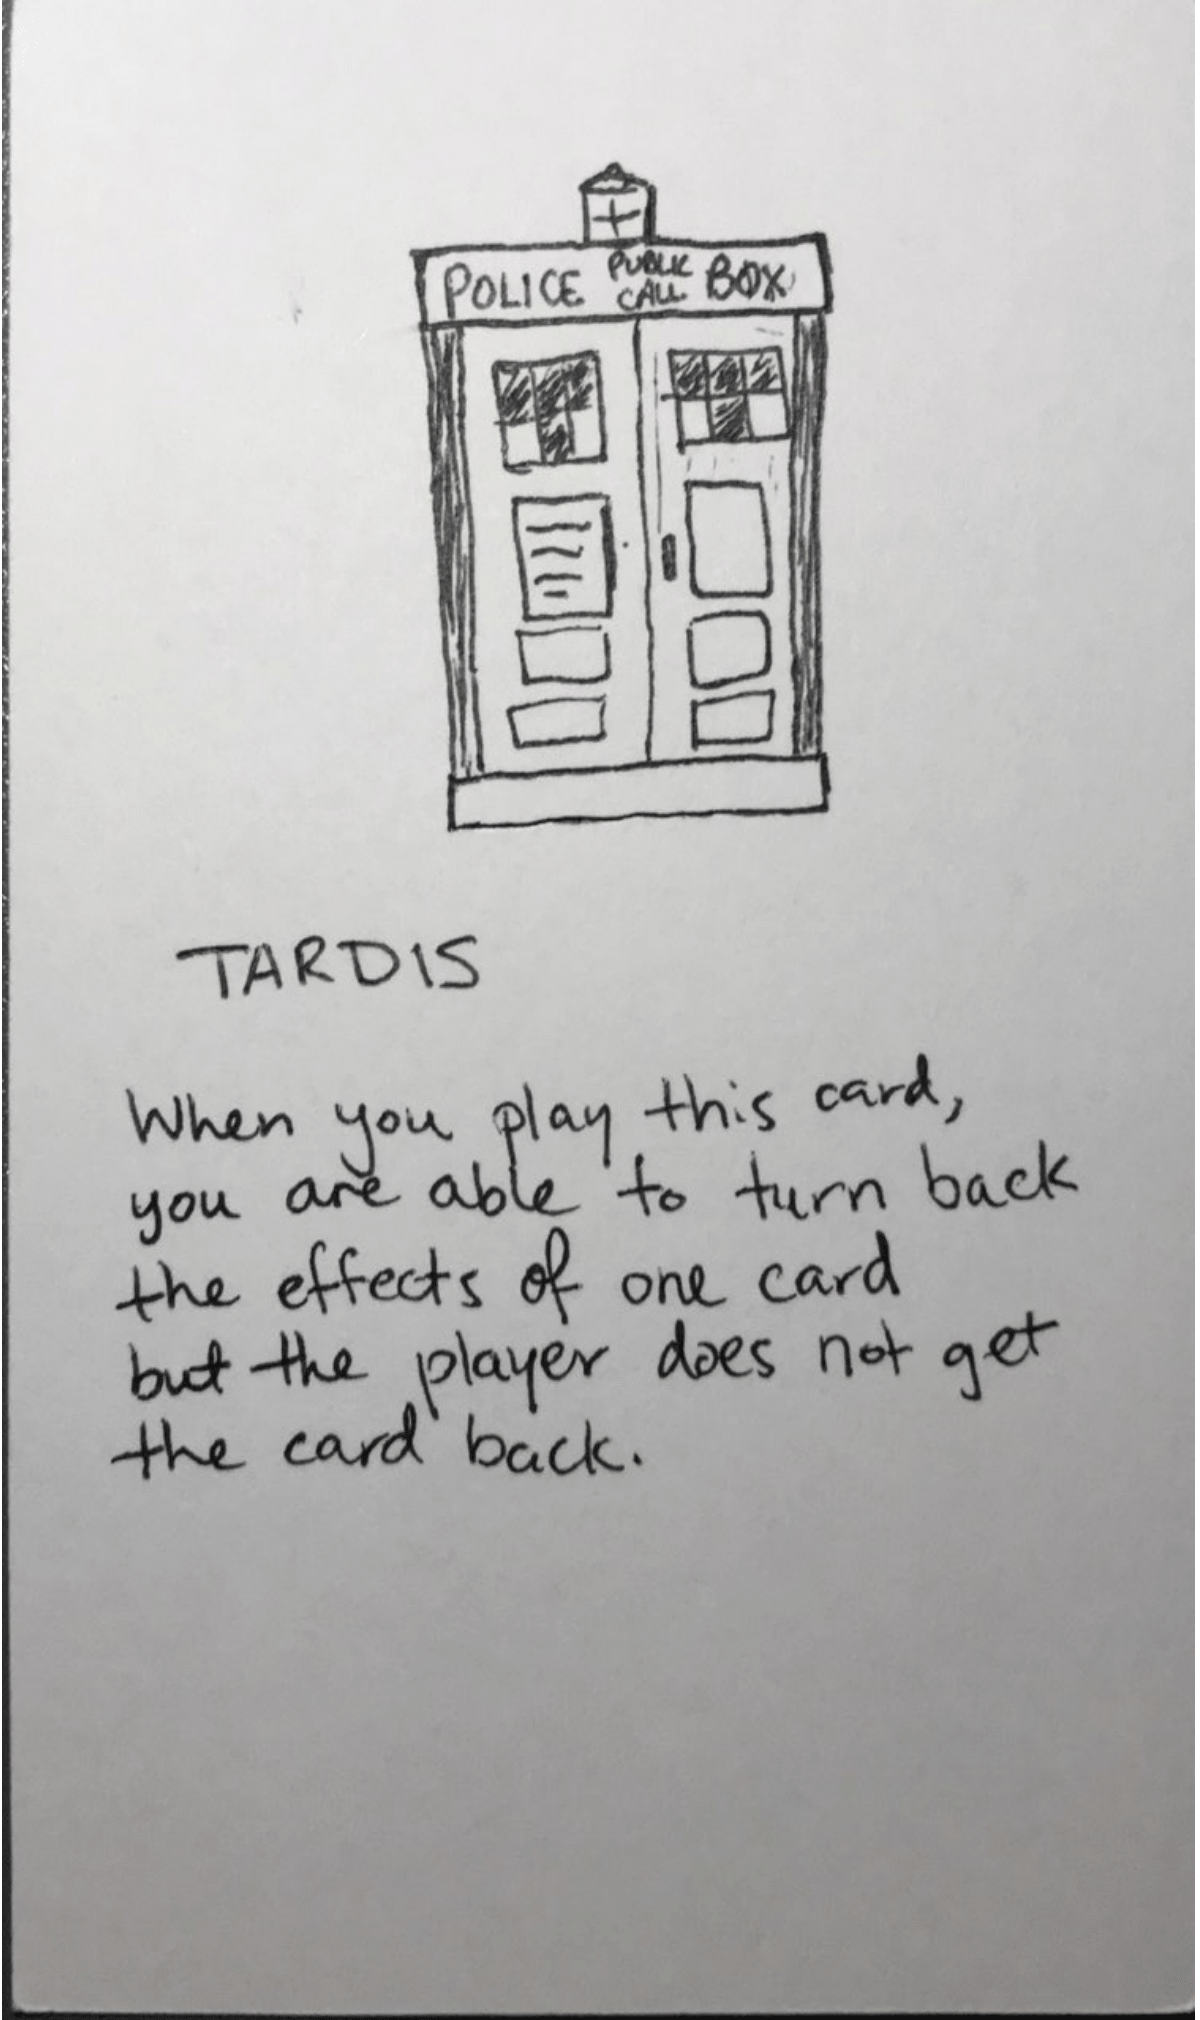 POLICE PUBLIC CALL BOX
TARDIS
When you play this card,
you are able to turn back
the effects of one card
but the player does not get
the card back.